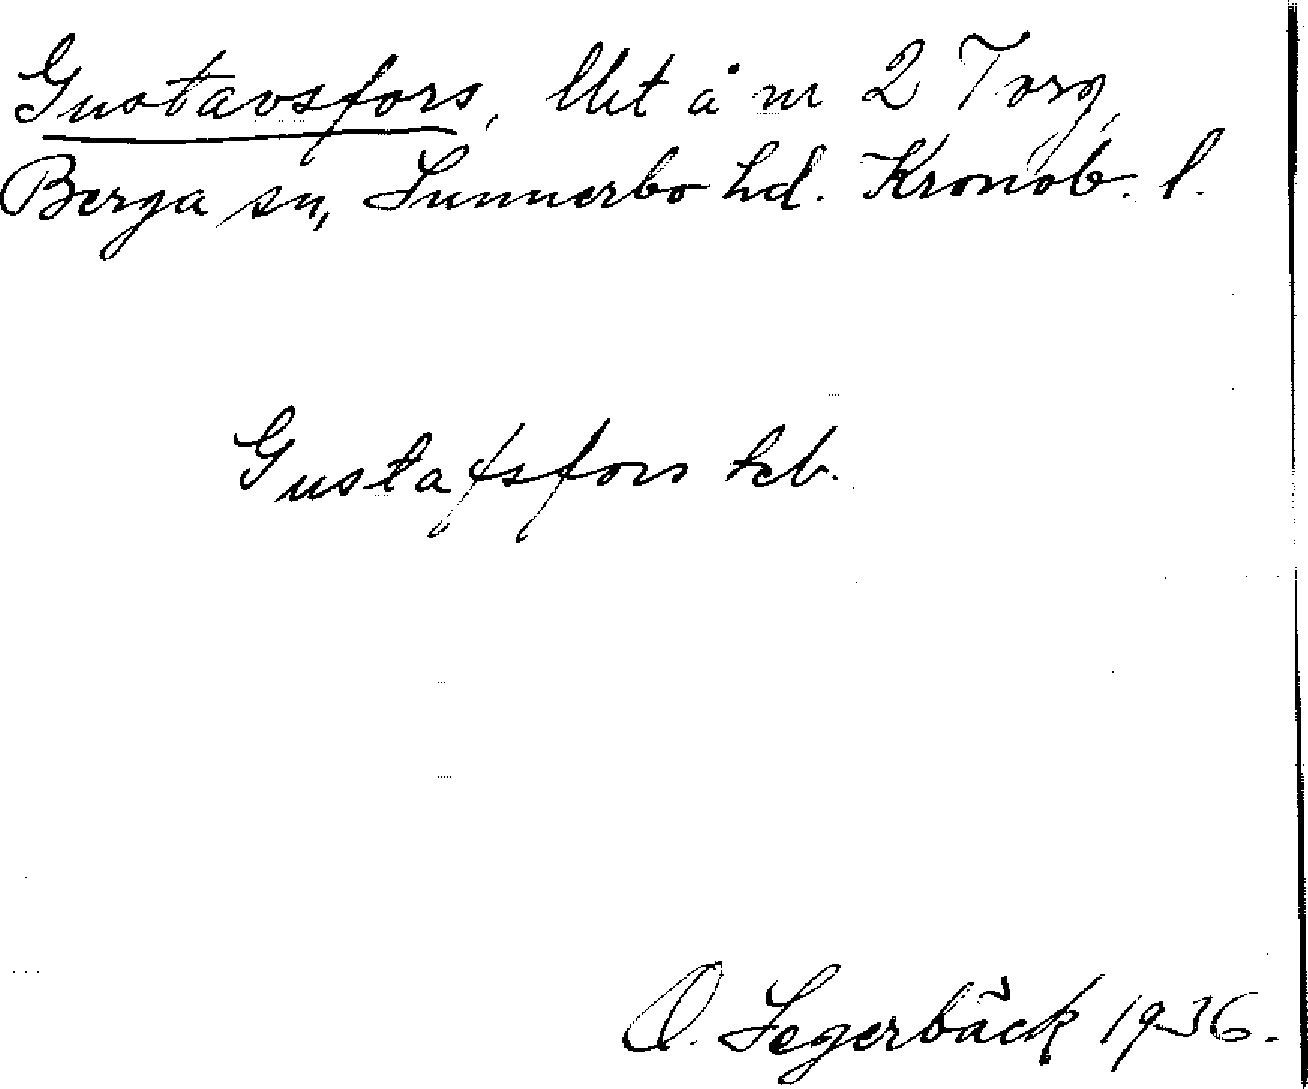 Gustavsfors, lht å nr 2 Torg,
Berga sn, Sunnerbo hd. Kronob. l.
Gustafsfors kb.
O. Segerbäck 1936.